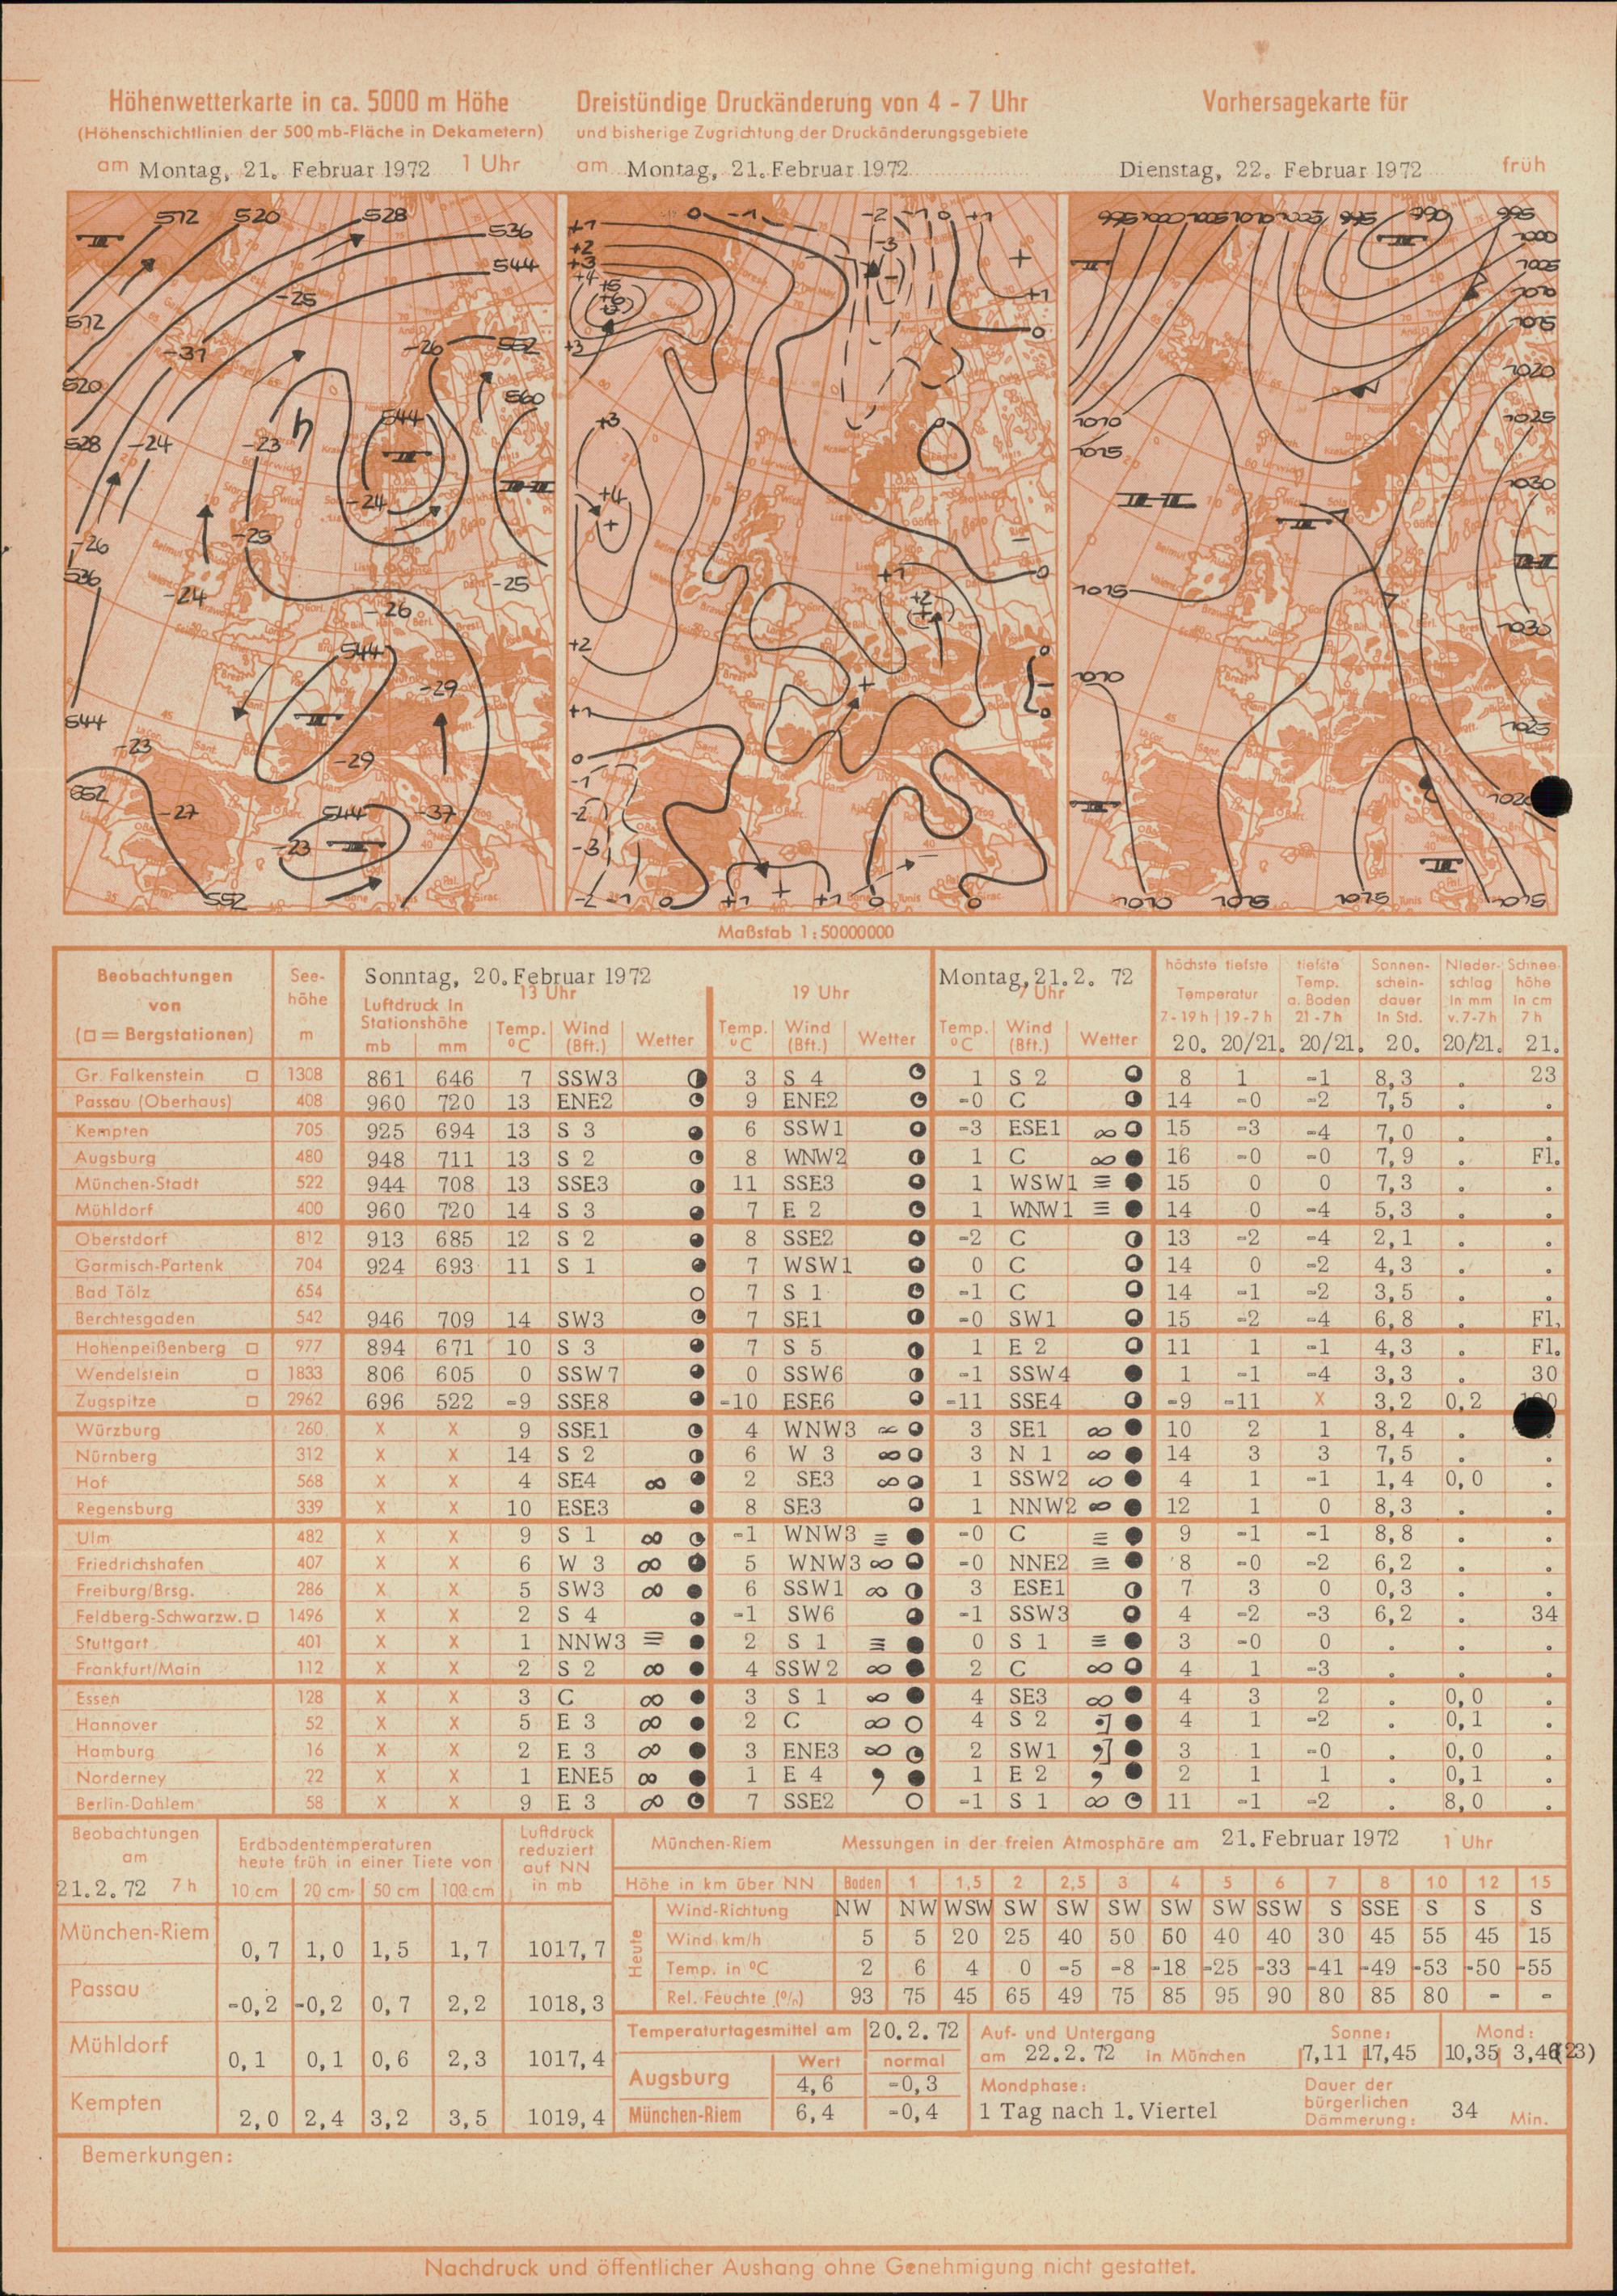 Höhenwetterkarte in ca. 5000 m Höhe
(Höhenschichtlinien der 500 mb-Fläche in Dekametern)
am Montag, 21. Februar 1972 1 Uhr
Dreistündige Druckänderung von 4 - 7 Uhr
und bisherige Zugrichtung der Druckänderungsgebiete
am Montag, 21. Februar 1972
Vorhersagekarte für
Dienstag, 22. Februar 1972 früh
512 520 528 536 544
-25
512
-31 -26 552
520 560
544
528 -24 -23
-24
-26 -25
536 -24 -25
-26
544
-29
544
-23 -29
552 -27 544 -37
-23
552
+1 0 -1 -2 -1 0 +1
+2 -3 +
+3
+4 +5
+6
+1
0
+3
+3 0
+4
+
-
+1 0
+2
+
+2 0
+
-
+1 0
0
-1
-2
-3
-2 -1 0 +1 + +1 0 0
995 1000 1005 1010 1005 995 990 995
1000
1005
1010
1015
1020
1010 1025
1015
1030
1015
1030
1010
1025
1020
1010 1015 1015 1015
Maßstab 1:50000000
Beobachtungen von (□ = Bergstationen) Seehöhe m Sonntag, 20. Februar 1972 Montag, 21. 2. 72
13 Uhr 19 Uhr 7 Uhr
Luftdruck in Stationshöhe mb mm Temp. °C Wind (Bft.) Wetter Temp. °C Wind (Bft.) Wetter Temp. °C Wind (Bft.) Wetter
höchste tiefste Temperatur 7-19h 19-7h tiefste Temp. a. Boden 21-7h Sonnenscheindauer in Std. Niederschlag in mm v. 7-7h Schneehöhe in cm 7h
20. 20/21. 20/21. 20. 20/21. 21.
Gr. Falkenstein □ 1308 861 646 7 SSW3 3 S 4 1 S 2 8 1 -1 8,3 . 23
Passau (Oberhaus) 408 960 720 13 ENE2 9 ENE2 -0 C 14 -0 -2 7,5 . .
Kempten 705 925 694 13 S 3 6 SSW1 -3 ESE1 ∞ 15 -3 -4 7,0 . .
Augsburg 480 948 711 13 S 2 8 WNW2 1 C ∞ 16 -0 -0 7,9 . Fl.
München-Stadt 522 944 708 13 SSE3 11 SSE3 1 WSW1 ≡ 15 0 0 7,3 . .
Mühldorf 400 960 720 14 S 3 7 E 2 1 WNW1 ≡ 14 0 -4 5,3 . .
Oberstdorf 812 913 685 12 S 2 8 SSE2 -2 C 13 -2 -4 2,1 . .
Garmisch-Partenk 704 924 693 11 S 1 7 WSW1 0 C 14 0 -2 4,3 . .
Bad Tölz 654 7 S 1 -1 C 14 -1 -2 3,5 . .
Berchtesgaden 542 946 709 14 SW3 7 SE1 -0 SW1 15 -2 -4 6,8 . Fl.
Hohenpeißenberg □ 977 894 671 10 S 3 7 S 5 1 E 2 11 1 -1 4,3 . Fl.
Wendelstein □ 1833 806 605 0 SSW7 0 SSW6 -1 SSW4 1 -1 -4 3,3 . 30
Zugspitze □ 2962 696 522 -9 SSE8 -10 ESE6 -11 SSE4 -9 -11 X 3,2 0,2
Würzburg 260 X X 9 SSE1 4 WNW3 ∞ 3 SE1 ∞ 10 2 1 8,4 . .
Nürnberg 312 X X 14 S 2 6 W 3 ∞ 3 N 1 ∞ 14 3 3 7,5 . .
Hof 568 X X 4 SE4 ∞ 2 SE3 ∞ 1 SSW2 ∞ 4 1 -1 1,4 0,0 .
Regensburg 339 X X 10 ESE3 8 SE3 1 NNW2 ∞ 12 1 0 8,3 . .
Ulm 482 X X 9 S 1 ∞ -1 WNW3 ≡ -0 C ≡ 9 -1 -1 8,8 . .
Friedrichshafen 407 X X 6 W 3 ∞ 5 WNW3 ∞ -0 NNE2 ≡ 8 -0 -2 6,2 . .
Freiburg/Brsg. 286 X X 5 SW3 ∞ 6 SSW1 ∞ 3 ESE1 7 3 0 0,3 . .
Feldberg-Schwarzw. □ 1496 X X 2 S 4 -1 SW6 -1 SSW3 4 -2 -3 6,2 . 34
Stuttgart 401 X X 1 NNW3 ≡ 2 S 1 ≡ 0 S 1 ≡ 3 -0 0 . . .
Frankfurt/Main 112 X X 2 S 2 ∞ 4 SSW2 ∞ 2 C ∞ 4 1 -3 . . .
Essen 128 X X 3 C ∞ 3 S 1 ∞ 4 SE3 ∞ 4 3 2 . 0,0 .
Hannover 52 X X 5 E 3 ∞ 2 C ∞ 4 S 2 •] 4 1 -2 . 0,1 .
Hamburg 16 X X 2 E 3 ∞ 3 ENE3 ∞ 2 SW1 ,] 3 1 -0 . 0,0 .
Norderney 22 X X 1 ENE5 ∞ 1 E 4 , 1 E 2 , 2 1 1 . 0,1 .
Berlin-Dahlem 58 X X 9 E 3 ∞ 7 SSE2 -1 S 1 ∞ 11 -1 -2 . 8,0 .
Beobachtungen am 21.2.72 7h
Erdbodentemperaturen heute früh in einer Tiefe von
10 cm 20 cm 50 cm 100 cm
Luftdruck reduziert auf NN in mb
München-Riem 0,7 1,0 1,5 1,7 1017,7
Passau -0,2 -0,2 0,7 2,2 1018,3
Mühldorf 0,1 0,1 0,6 2,3 1017,4
Kempten 2,0 2,4 3,2 3,5 1019,4
München-Riem Messungen in der freien Atmosphäre am 21. Februar 1972 1 Uhr
Höhe in km über NN Boden 1 1,5 2 2,5 3 4 5 6 7 8 10 12 15
Heute
Wind-Richtung NW NW WSW SW SW SW SW SW SSW S SSE S S S
Wind km/h 5 5 20 25 40 50 60 40 40 30 45 55 45 15
Temp. in °C 2 6 4 0 -5 -8 -18 -25 -33 -41 -49 -53 -50 -55
Rel. Feuchte (%) 93 75 45 65 49 75 85 95 90 80 85 80 - -
Temperaturtagesmittel am 20.2.72
Wert normal
Augsburg 4,6 -0,3
München-Riem 6,4 -0,4
Auf- und Untergang Sonne: Mond:
am 22.2.72 in München 7,11 17,45 10,35 3,46(23)
Mondphase: 1 Tag nach 1. Viertel
Dauer der bürgerlichen Dämmerung: 34 Min.
Bemerkungen:
Nachdruck und öffentlicher Aushang ohne Genehmigung nicht gestattet.